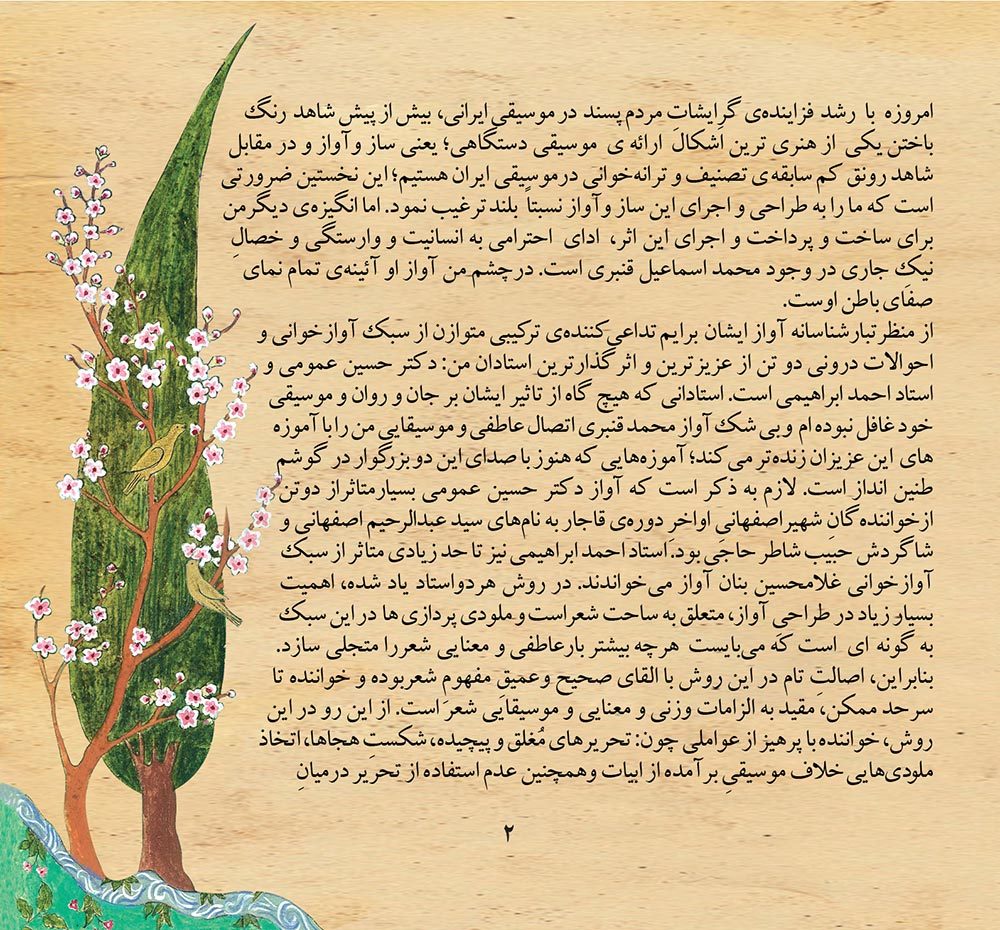 امروزه با رشد فزاینده‌ی گرایشات مردم پسند در موسیقی ایرانی، بیش از پیش شاهد رنگ
باختن یکی از هنری ترین اَشکالَ ارائه ی موسیقی دستگاهی؛ یعنی ساز وآواز و در مقابل
شاهد رونق کم سابقه‌ی تصنیف و ترانه‌خوانی درموسیقی ایران هستیم؛ این نخستین ضرورتی
است که ما را به طراحی و اجرای این ساز وآواز نسبتاً بلند ترغیب نمود. اما انگیزه‌ی دیگرمن
برای ساخت و پرداخت و اجرای این اثر، ادای احترامی به انسانیت و وارستگی و خصالِ
نیک جاری در وجود محمد اسماعیل قنبری است. درچشم من آواز او آئینه‌ی تمام نمای
صفای باطن اوست.
از منظر تبارشناسانه آواز ایشان برایم تداعی‌کننده‌ی ترکیبی متوازن از سبک آوازخوانی و
احوالات درونی دو تن از عزیزترین و اثرگذارترین استادان من: دکتر حسین عمومی و
استاد احمد ابراهیمی است. استادانی که هیچ گاه از تاثیر ایشان بر جان و روان و موسیقی
خود غافل نبوده ام وبی شک آواز محمد قنبری اتصال عاطفی و موسیقایی من را با آموزه
های این عزیزان زنده‌تر می کند؛ آموزه‌هایی که هنوز با صدای این دو بزرگوار در گوشم
طنین انداز است. لازم به ذکر است که آواز دکتر حسین عمومی بسیارمتاثراز دوتن
ازخواننده گانِ شهیراصفهانی اواخرِ دوره‌ی قاجار به نام‌های سید عبدالرحیم اصفهانی و
شاگردش حبیب شاطر حاجی بود. استاد احمد ابراهیمی نیز تا حد زیادی متاثر از سبک
آوازخوانی غلامحسین بنان آواز می‌خواندند. در روش هردواستاد یاد شده، اهمیت
بسیار زیاد در طراحی آواز، متعلق به ساحت شعراست و ملودی پردازی ها در این سبک
به گونه ای است که می‌بایست هرچه بیشتر بارعاطفی و معنایی شعررا متجلی سازد.
بنابراین، اصالتِ تام در این روش با القای صحیح وعمیقِ مفهوم شعربوده و خواننده تا
سرحد ممکن، مقید به الزامات وزنی و معنایی و موسیقایی شعر است. از این رو در این
روش، خواننده با پرهیز از عواملی چون: تحریرهای مُغلق و پیچیده، شکستِ هجاها، اتخاذ
ملودی‌هایی خلاف موسیقیِ بر آمده از ابیات وهمچنین عدم استفاده از تحریر درمیانِ
۲